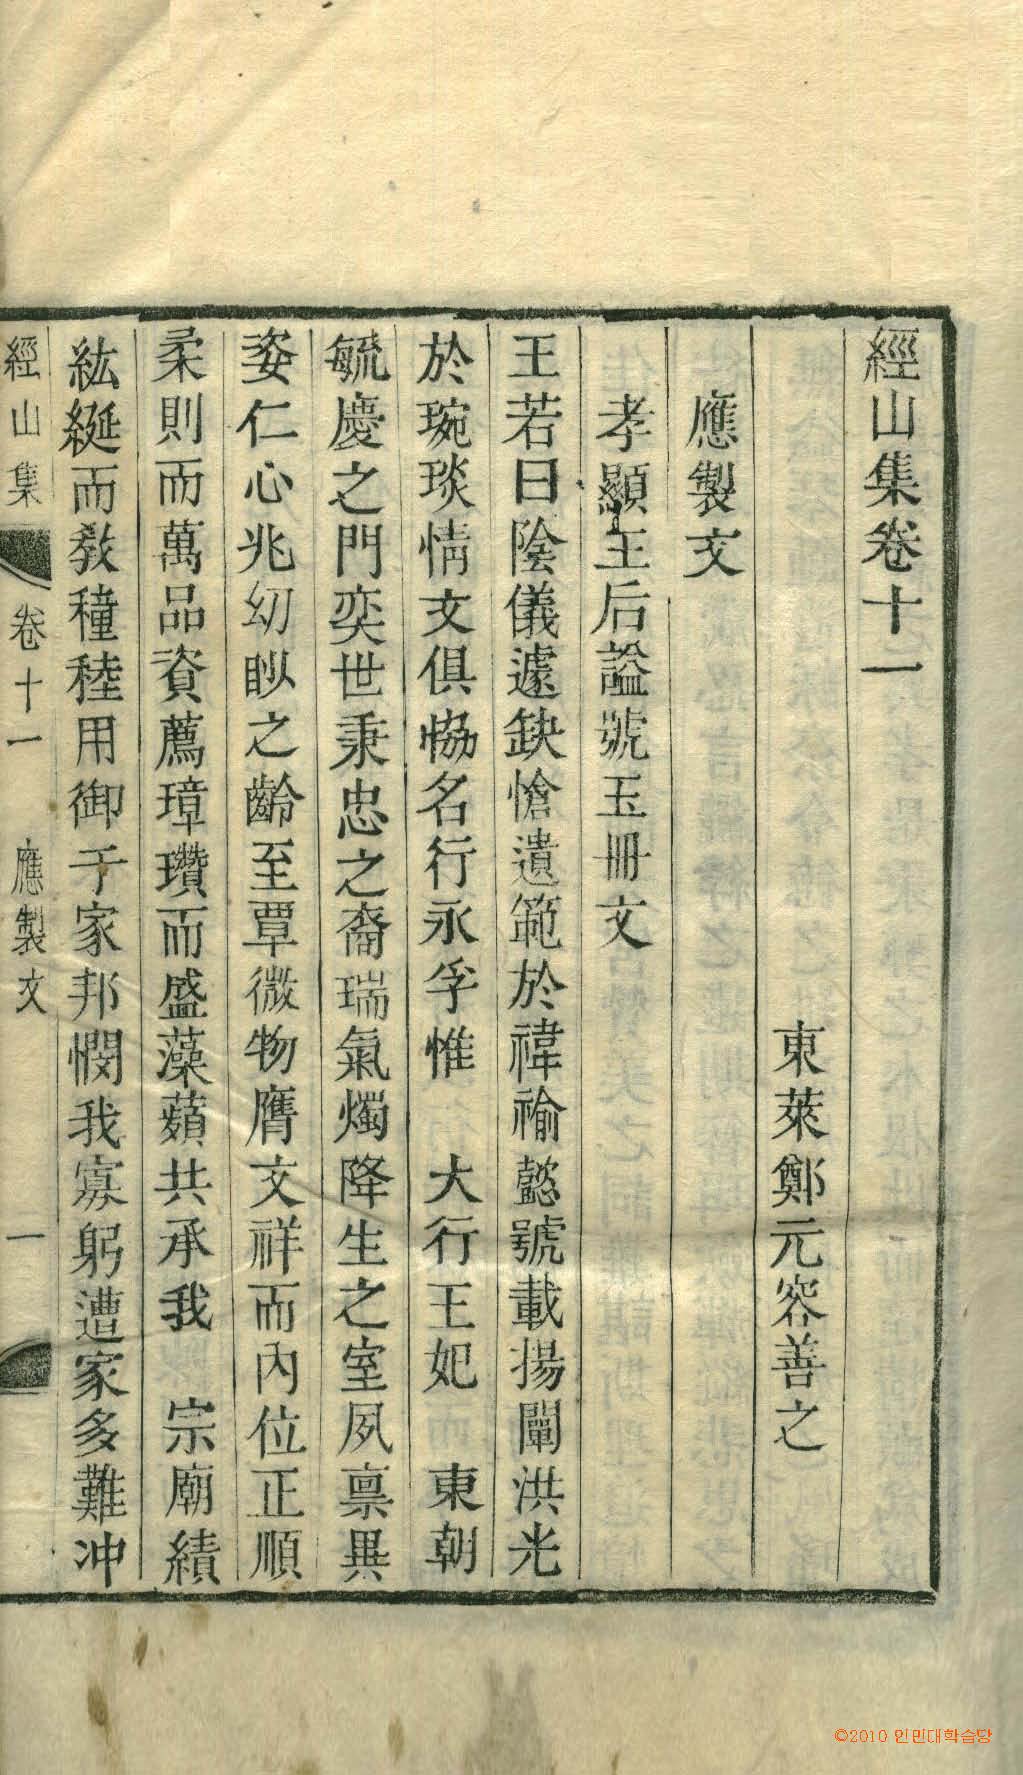 經山集卷十一
東萊鄭元容善之
應製文
孝顯王后謚號玉冊文
王若曰陰儀遽缺愴遺範於褘褕懿號載揚闡洪光
於琬琰情文俱恊名行永孚惟 大行王妃 東朝
毓慶之門奕世秉忠之裔瑞氣燭降生之室夙禀異
姿仁心兆幼眇之齡至覃微物膺文祥而內位正順
柔則而萬品資薦璋瓚而盛藻蘋共承我 宗廟績
紘綖而敎穜稑用御于家邦憫我寡躬遭家多難冲
經山集 卷十一 應製文 一
©2010 인민대학습당